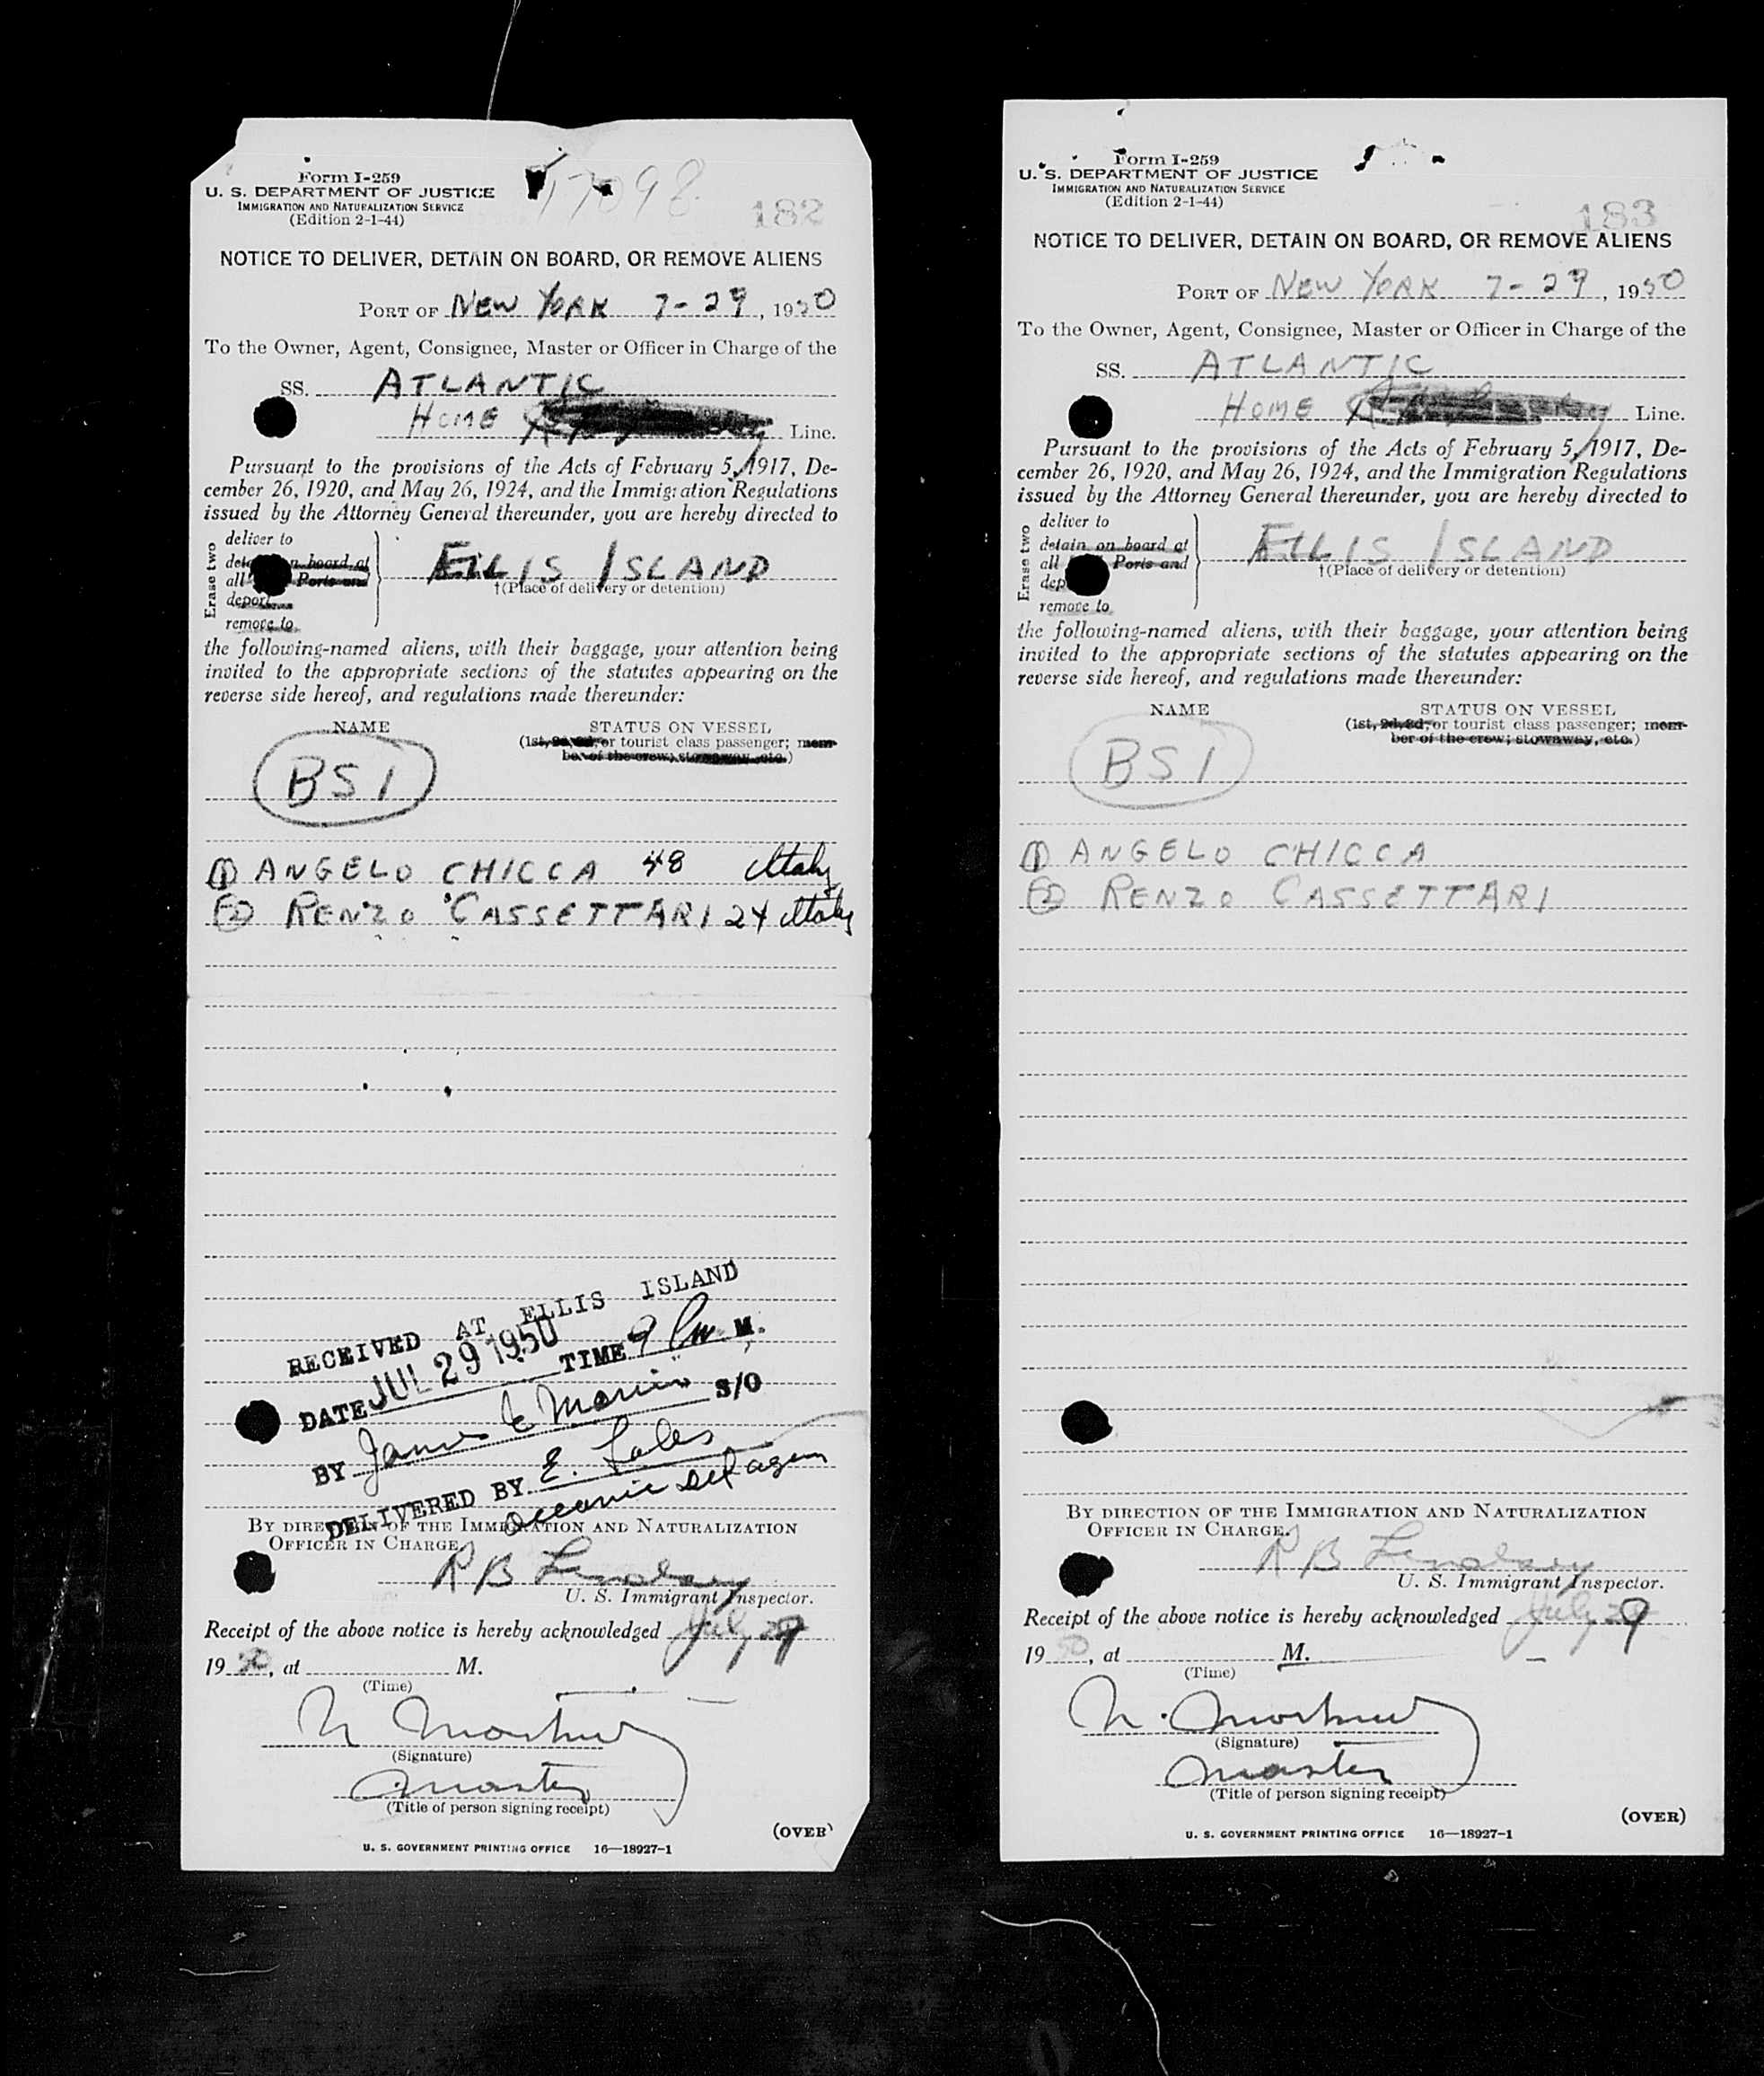 Form I-259
U. S. DEPARTMENT OF JUSTICE
IMMIGRATION AND NATURALIZATION SERVICE
(Edition 2-1-44)
17098
182
NOTICE TO DELIVER, DETAIN ON BOARD, OR REMOVE ALIENS
PORT OF NEW YORK 7-29, 1950
To the Owner, Agent, Consignee, Master or Officer in Charge of the
SS. ATLANTIC
HOME Line.
Pursuant to the provisions of the Acts of February 5, 1917, De-
cember 26, 1920, and May 26, 1924, and the Immigration Regulations
issued by the Attorney General thereunder, you are hereby directed to
Erase two
deliver to
detain on board at
all Ports and
deport
remove to
ELLIS ISLAND
†(Place of delivery or detention)
the following-named aliens, with their baggage, your attention being
invited to the appropriate sections of the statutes appearing on the
reverse side hereof, and regulations made thereunder:
NAME STATUS ON VESSEL
(1st, 2d, 3d, or tourist class passenger; mem-
ber of the crew; stowaway, etc.)
BSI
① ANGELO CHICCA 48 Italy
② RENZO CASSETTARI 24 Italy
RECEIVED AT ELLIS ISLAND
DATE JUL 29 1950 TIME 9 Pm M.
BY James E S/O
DELIVERED BY E.
Oceanic
BY DIRECTION OF THE IMMIGRATION AND NATURALIZATION
OFFICER IN CHARGE.
R B Lindsay
U. S. Immigrant Inspector.
Receipt of the above notice is hereby acknowledged July 29
1950, at M.
(Time)
(Signature)
Master
(Title of person signing receipt)
(OVER)
U. S. GOVERNMENT PRINTING OFFICE 16—18927-1
Form I-259
U. S. DEPARTMENT OF JUSTICE
IMMIGRATION AND NATURALIZATION SERVICE
(Edition 2-1-44)
183
NOTICE TO DELIVER, DETAIN ON BOARD, OR REMOVE ALIENS
PORT OF NEW YORK 7-29, 1950
To the Owner, Agent, Consignee, Master or Officer in Charge of the
SS. ATLANTIC
HOME Line.
Pursuant to the provisions of the Acts of February 5, 1917, De-
cember 26, 1920, and May 26, 1924, and the Immigration Regulations
issued by the Attorney General thereunder, you are hereby directed to
Erase two
deliver to
detain on board at
all Ports and
dep
remove to
ELLIS ISLAND
†(Place of delivery or detention)
the following-named aliens, with their baggage, your attention being
invited to the appropriate sections of the statutes appearing on the
reverse side hereof, and regulations made thereunder:
NAME STATUS ON VESSEL
(1st, 2d, 3d, or tourist class passenger; mem-
ber of the crew; stowaway, etc.)
BSI
① ANGELO CHICCA
② RENZO CASSETTARI
BY DIRECTION OF THE IMMIGRATION AND NATURALIZATION
OFFICER IN CHARGE.
R B Lindsay
U. S. Immigrant Inspector.
Receipt of the above notice is hereby acknowledged July 29
1950, at M.
(Time)
(Signature)
Master
(Title of person signing receipt)
(OVER)
U. S. GOVERNMENT PRINTING OFFICE 16—18927-1